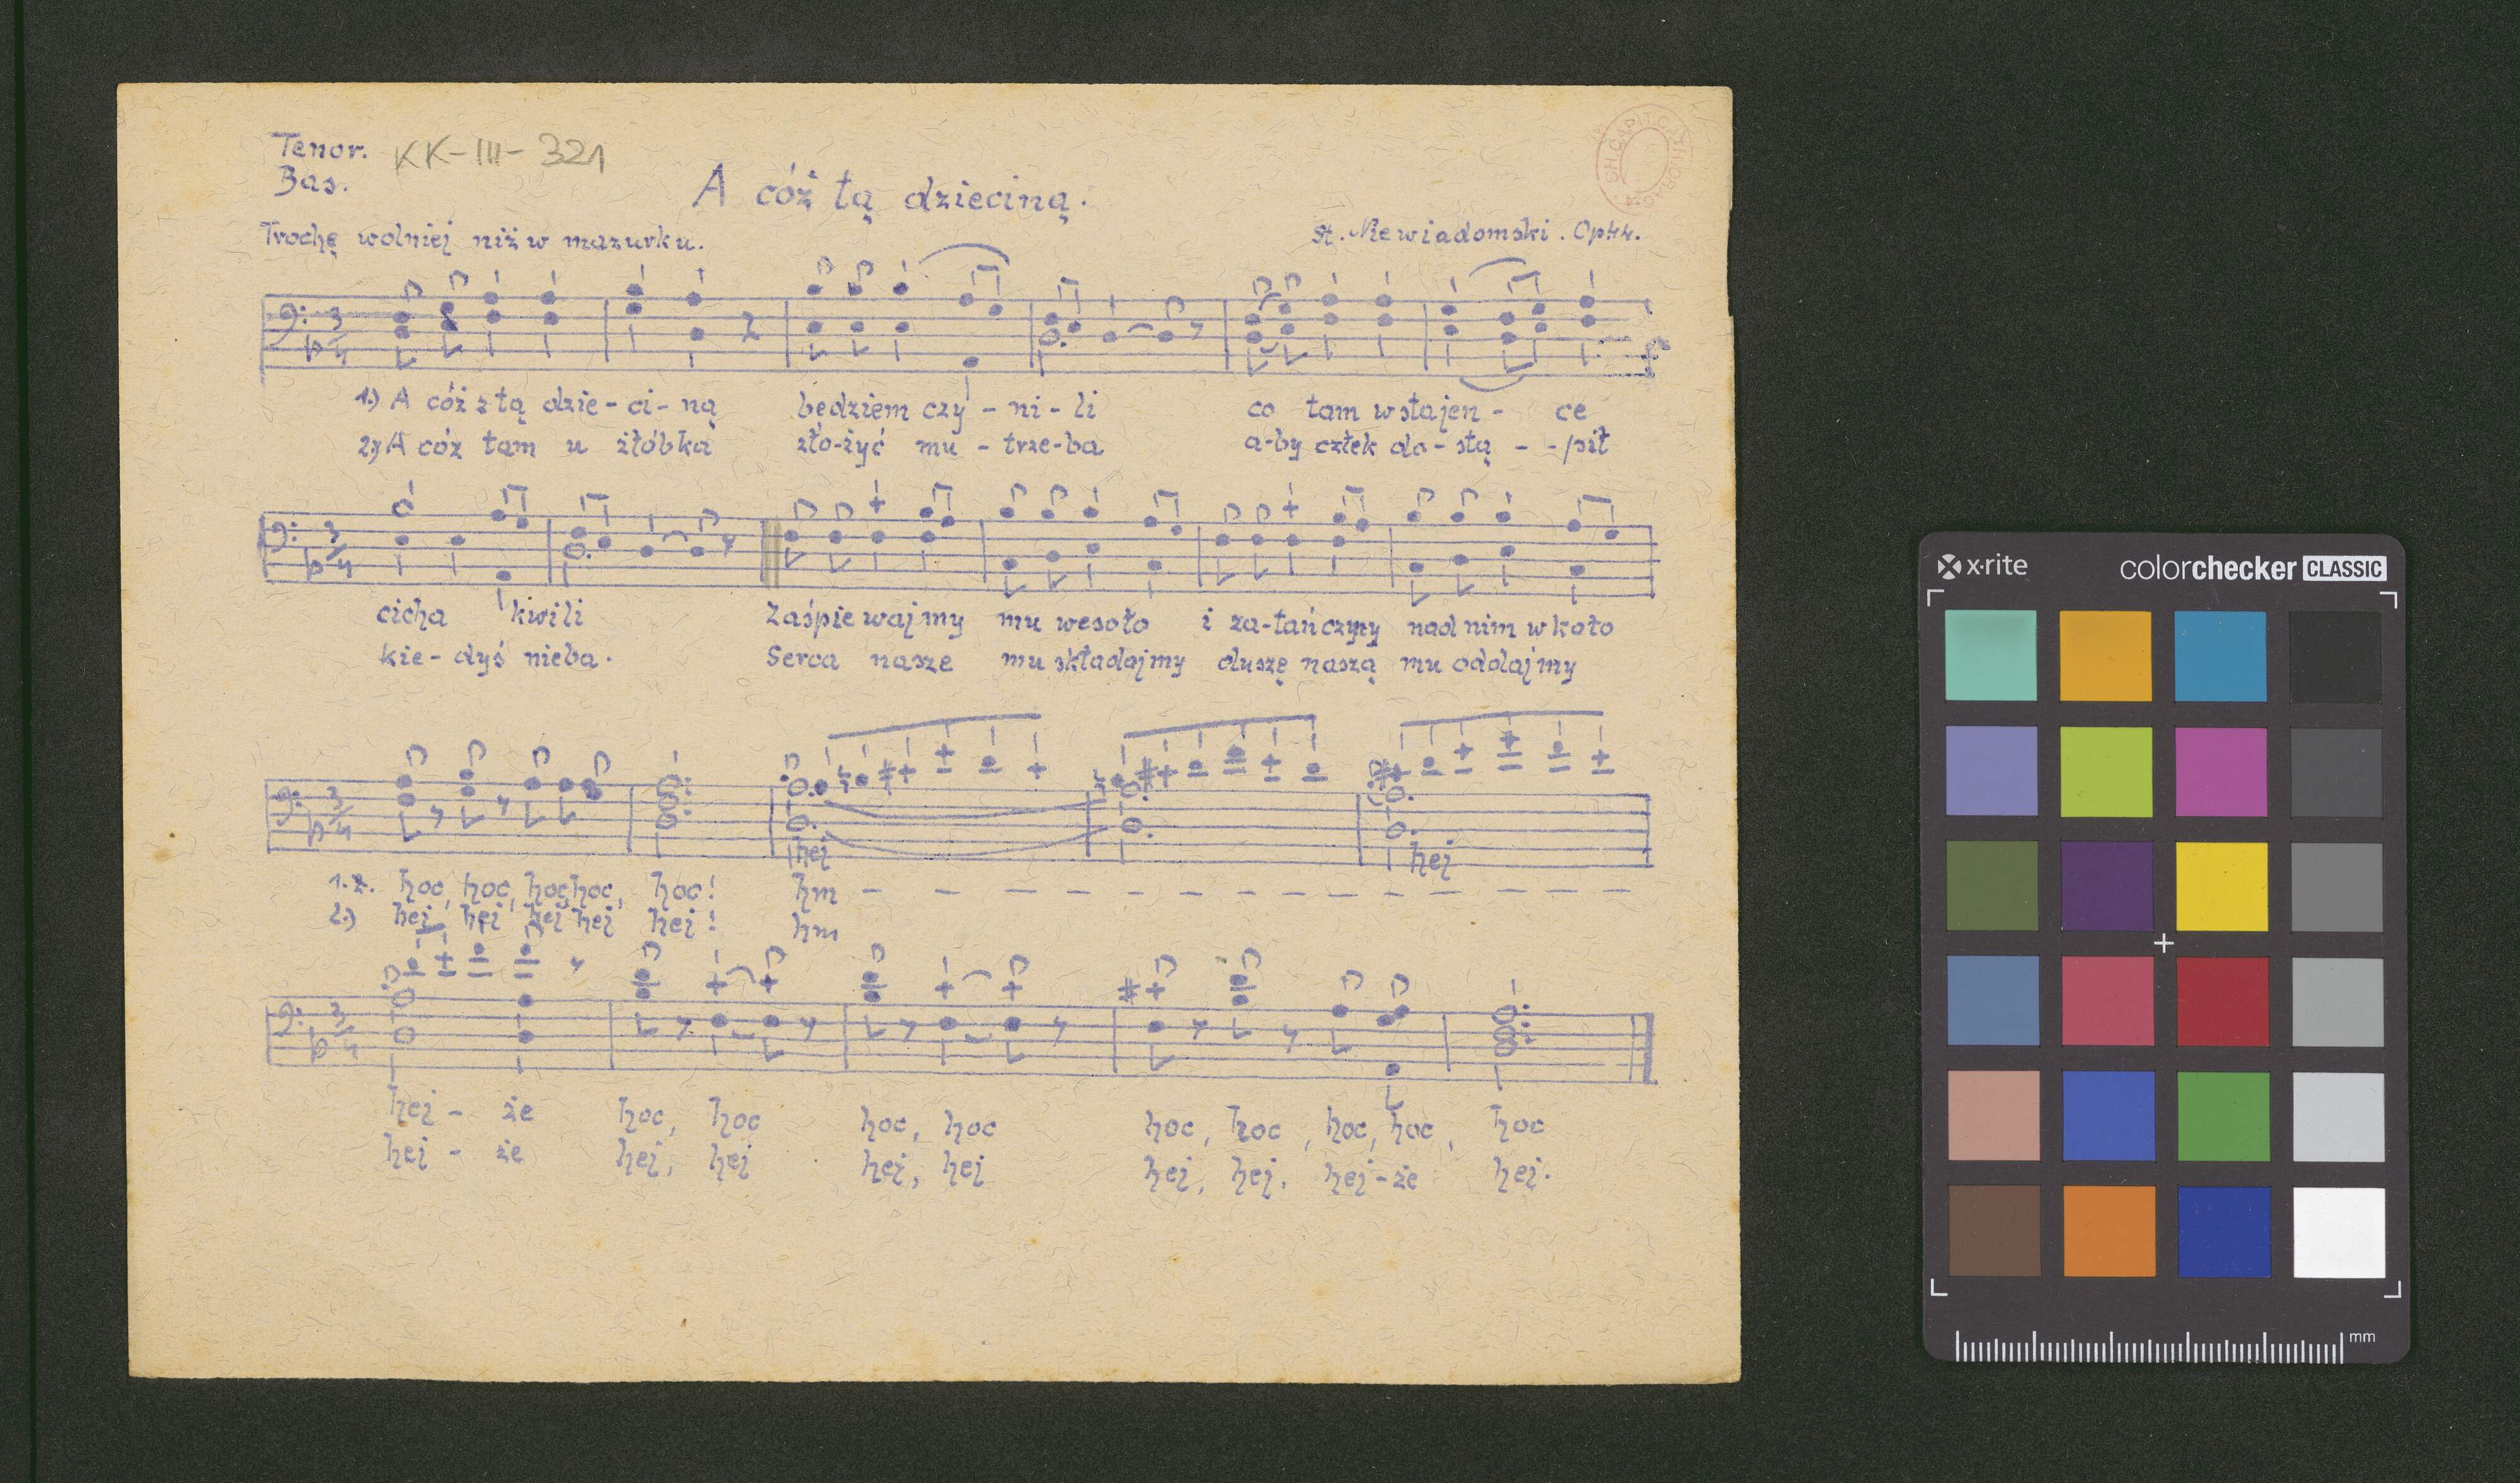 Tenor. KK-III-321
Bas.
A cóż tą dzieciną.
Trochę wolniej niż w mazurku.
St. Niewiadomski. Op44.
1.) A cóż z tą dzie-ci-ną będziem czy-ni-li co tam w stajen- ce
2.) A cóż tam u żłóbka zło-żyć mu-trze-ba a-by człek do-stą - - pił
cicha kwili Zaśpiewajmy mu wesoło i za-tańczymy nad nim w koło
kie-dyś nieba. Serca nasze mu składajmy duszę naszą mu oddajmy
hej hej
1.2. hoc, hoc, hoc, hoc, hoc! hm - - - - - - - - - - - -
2.) hej hej hej hej hej! hm
hej - że hoc, hoc hoc, hoc hoc, hoc, hoc, hoc, hoc
hej - że hej, hej hej, hej hej, hej, hej-że hej.
x·rite colorchecker CLASSIC
mm